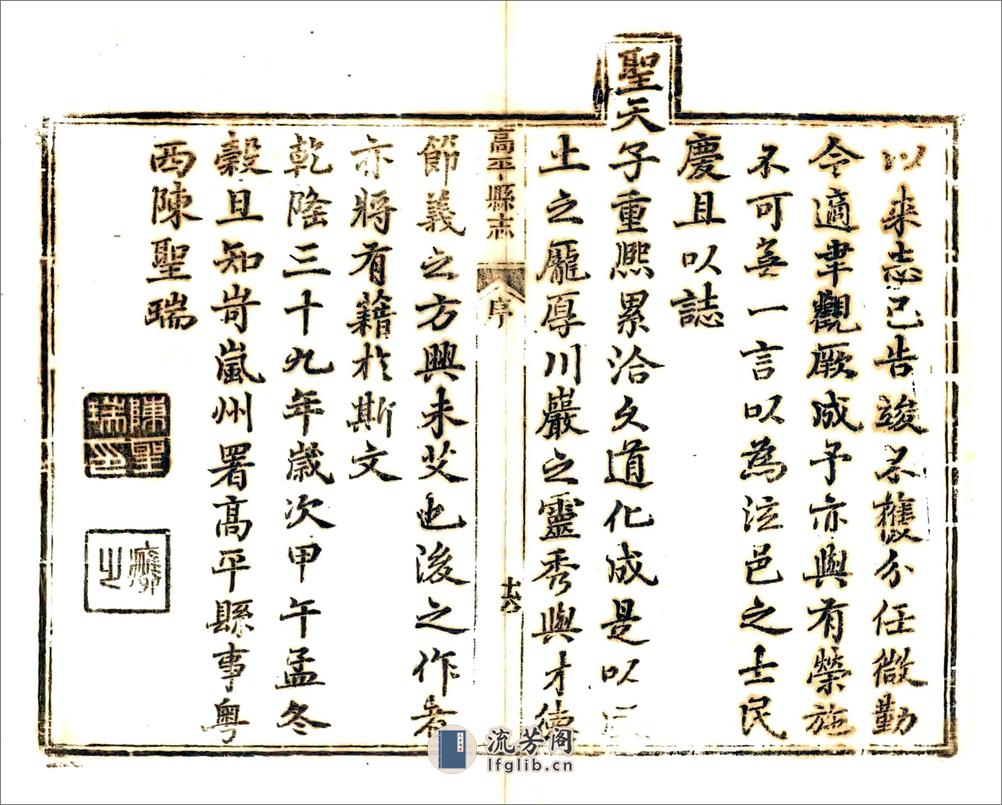 以来志已告竣不獲分任微勤
今適聿觀厥成予亦與有榮施
不可無一言以為泫邑之士民
慶且以誌
聖天子重熙累洽久道化成是以
土之厖厚川巖之靈秀與才德
高平縣志
序
節義之方興未艾也後之作者
亦將有籍於斯文
乾隆三十九年歲次甲午孟冬
穀旦知岢嵐州署高平縣事粤
西陳聖瑞
流芳阁
lfglib.cn